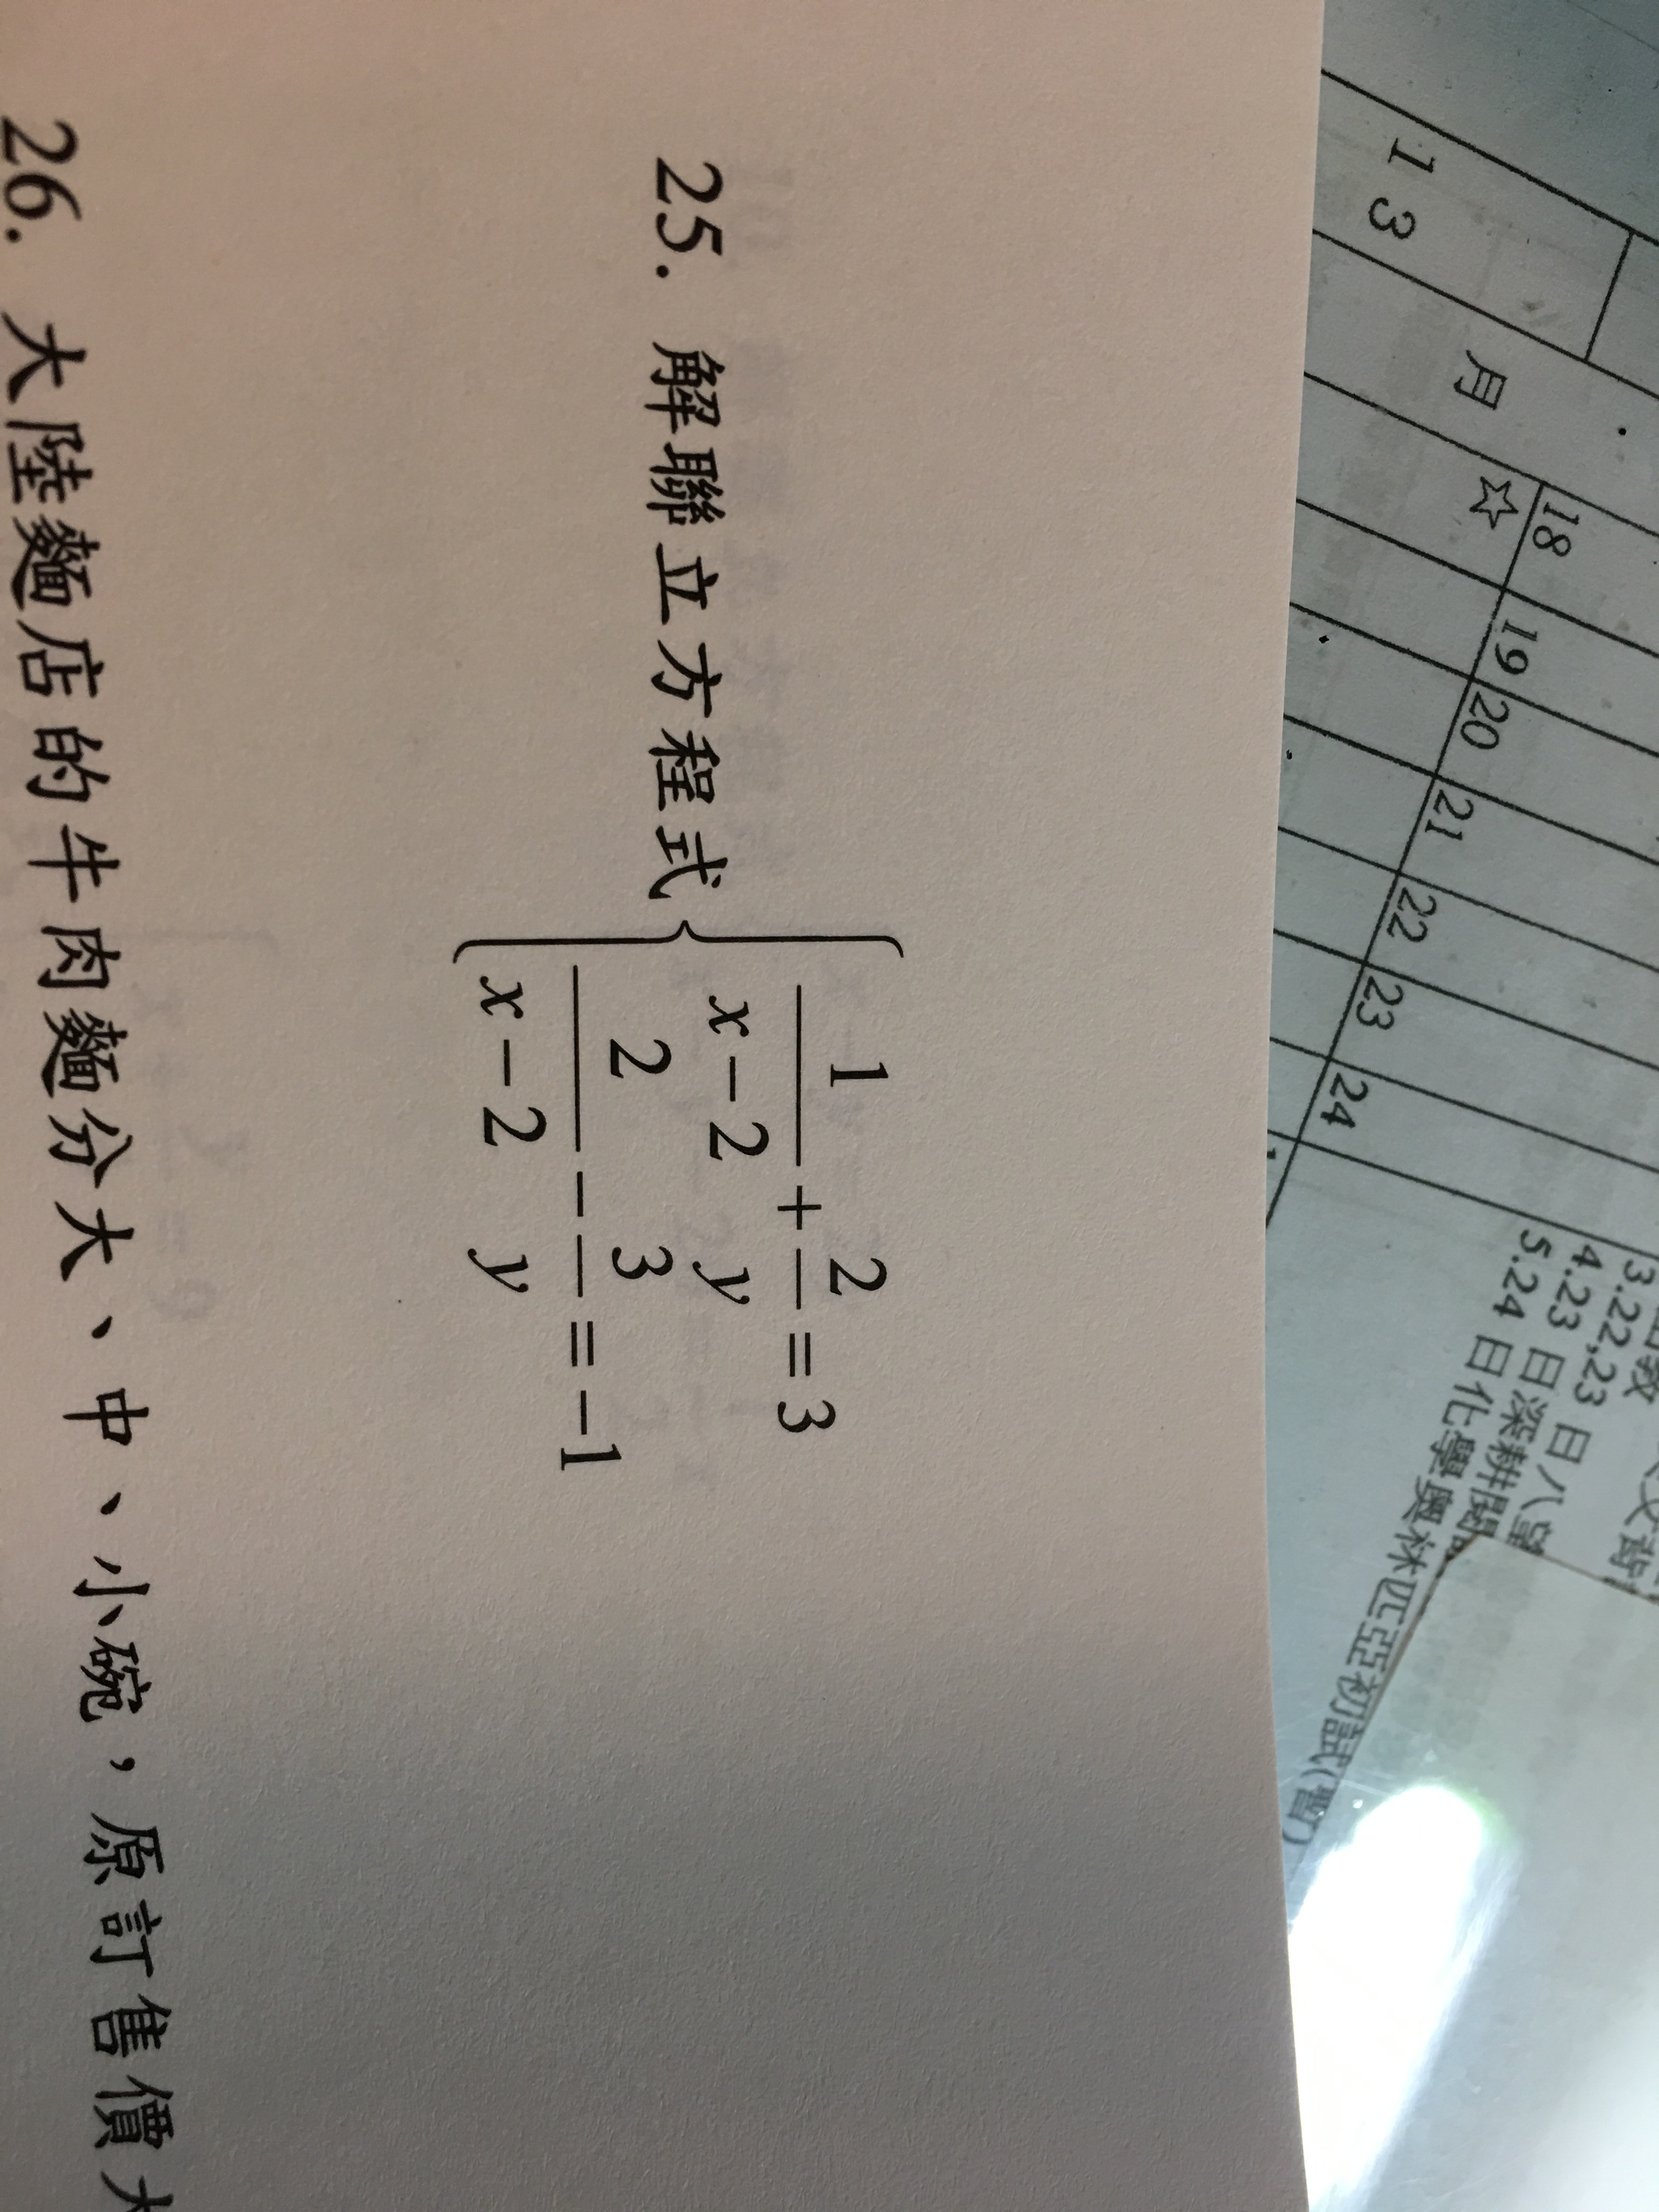 25. 解聯立方程式 { 1/(x-2) + 2/y = 3
2/(x-2) - 3/y = -1
26. 大陸麵店的牛肉麵分大、中、小碗，原訂售價大
1 3
月
☆
18 19 20 21 22 23 24
3.22,23 日八
4.23 日深耕閱
5.24 日化學奧林匹亞初試(暫)